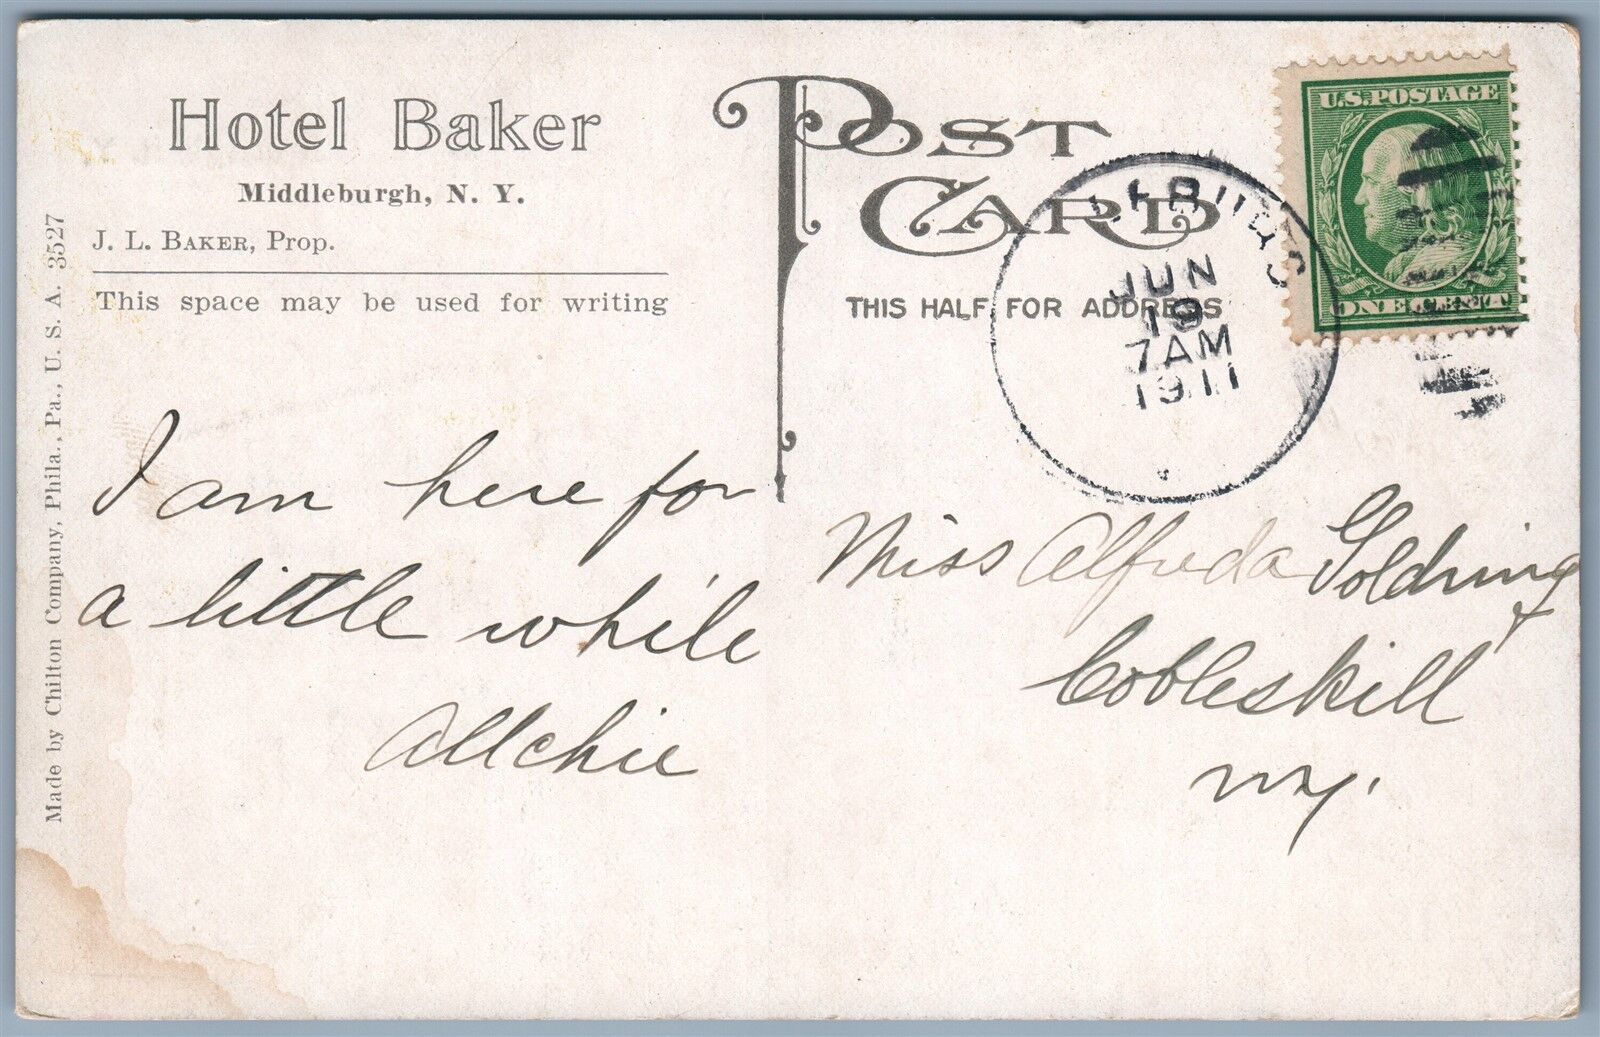 Hotel Baker
Middleburgh, N. Y.
J. L. BAKER, Prop.
This space may be used for writing
Made by Chilton Company, Phila., Pa., U. S. A. 3527
POST
CARD
THIS HALF FOR ADDRESS
U.S. POSTAGE
ONE CENT
JUN
19
7 AM
1911
I am here for
a little while
Miss Alfreda Goldring
Cobleskill
NY.